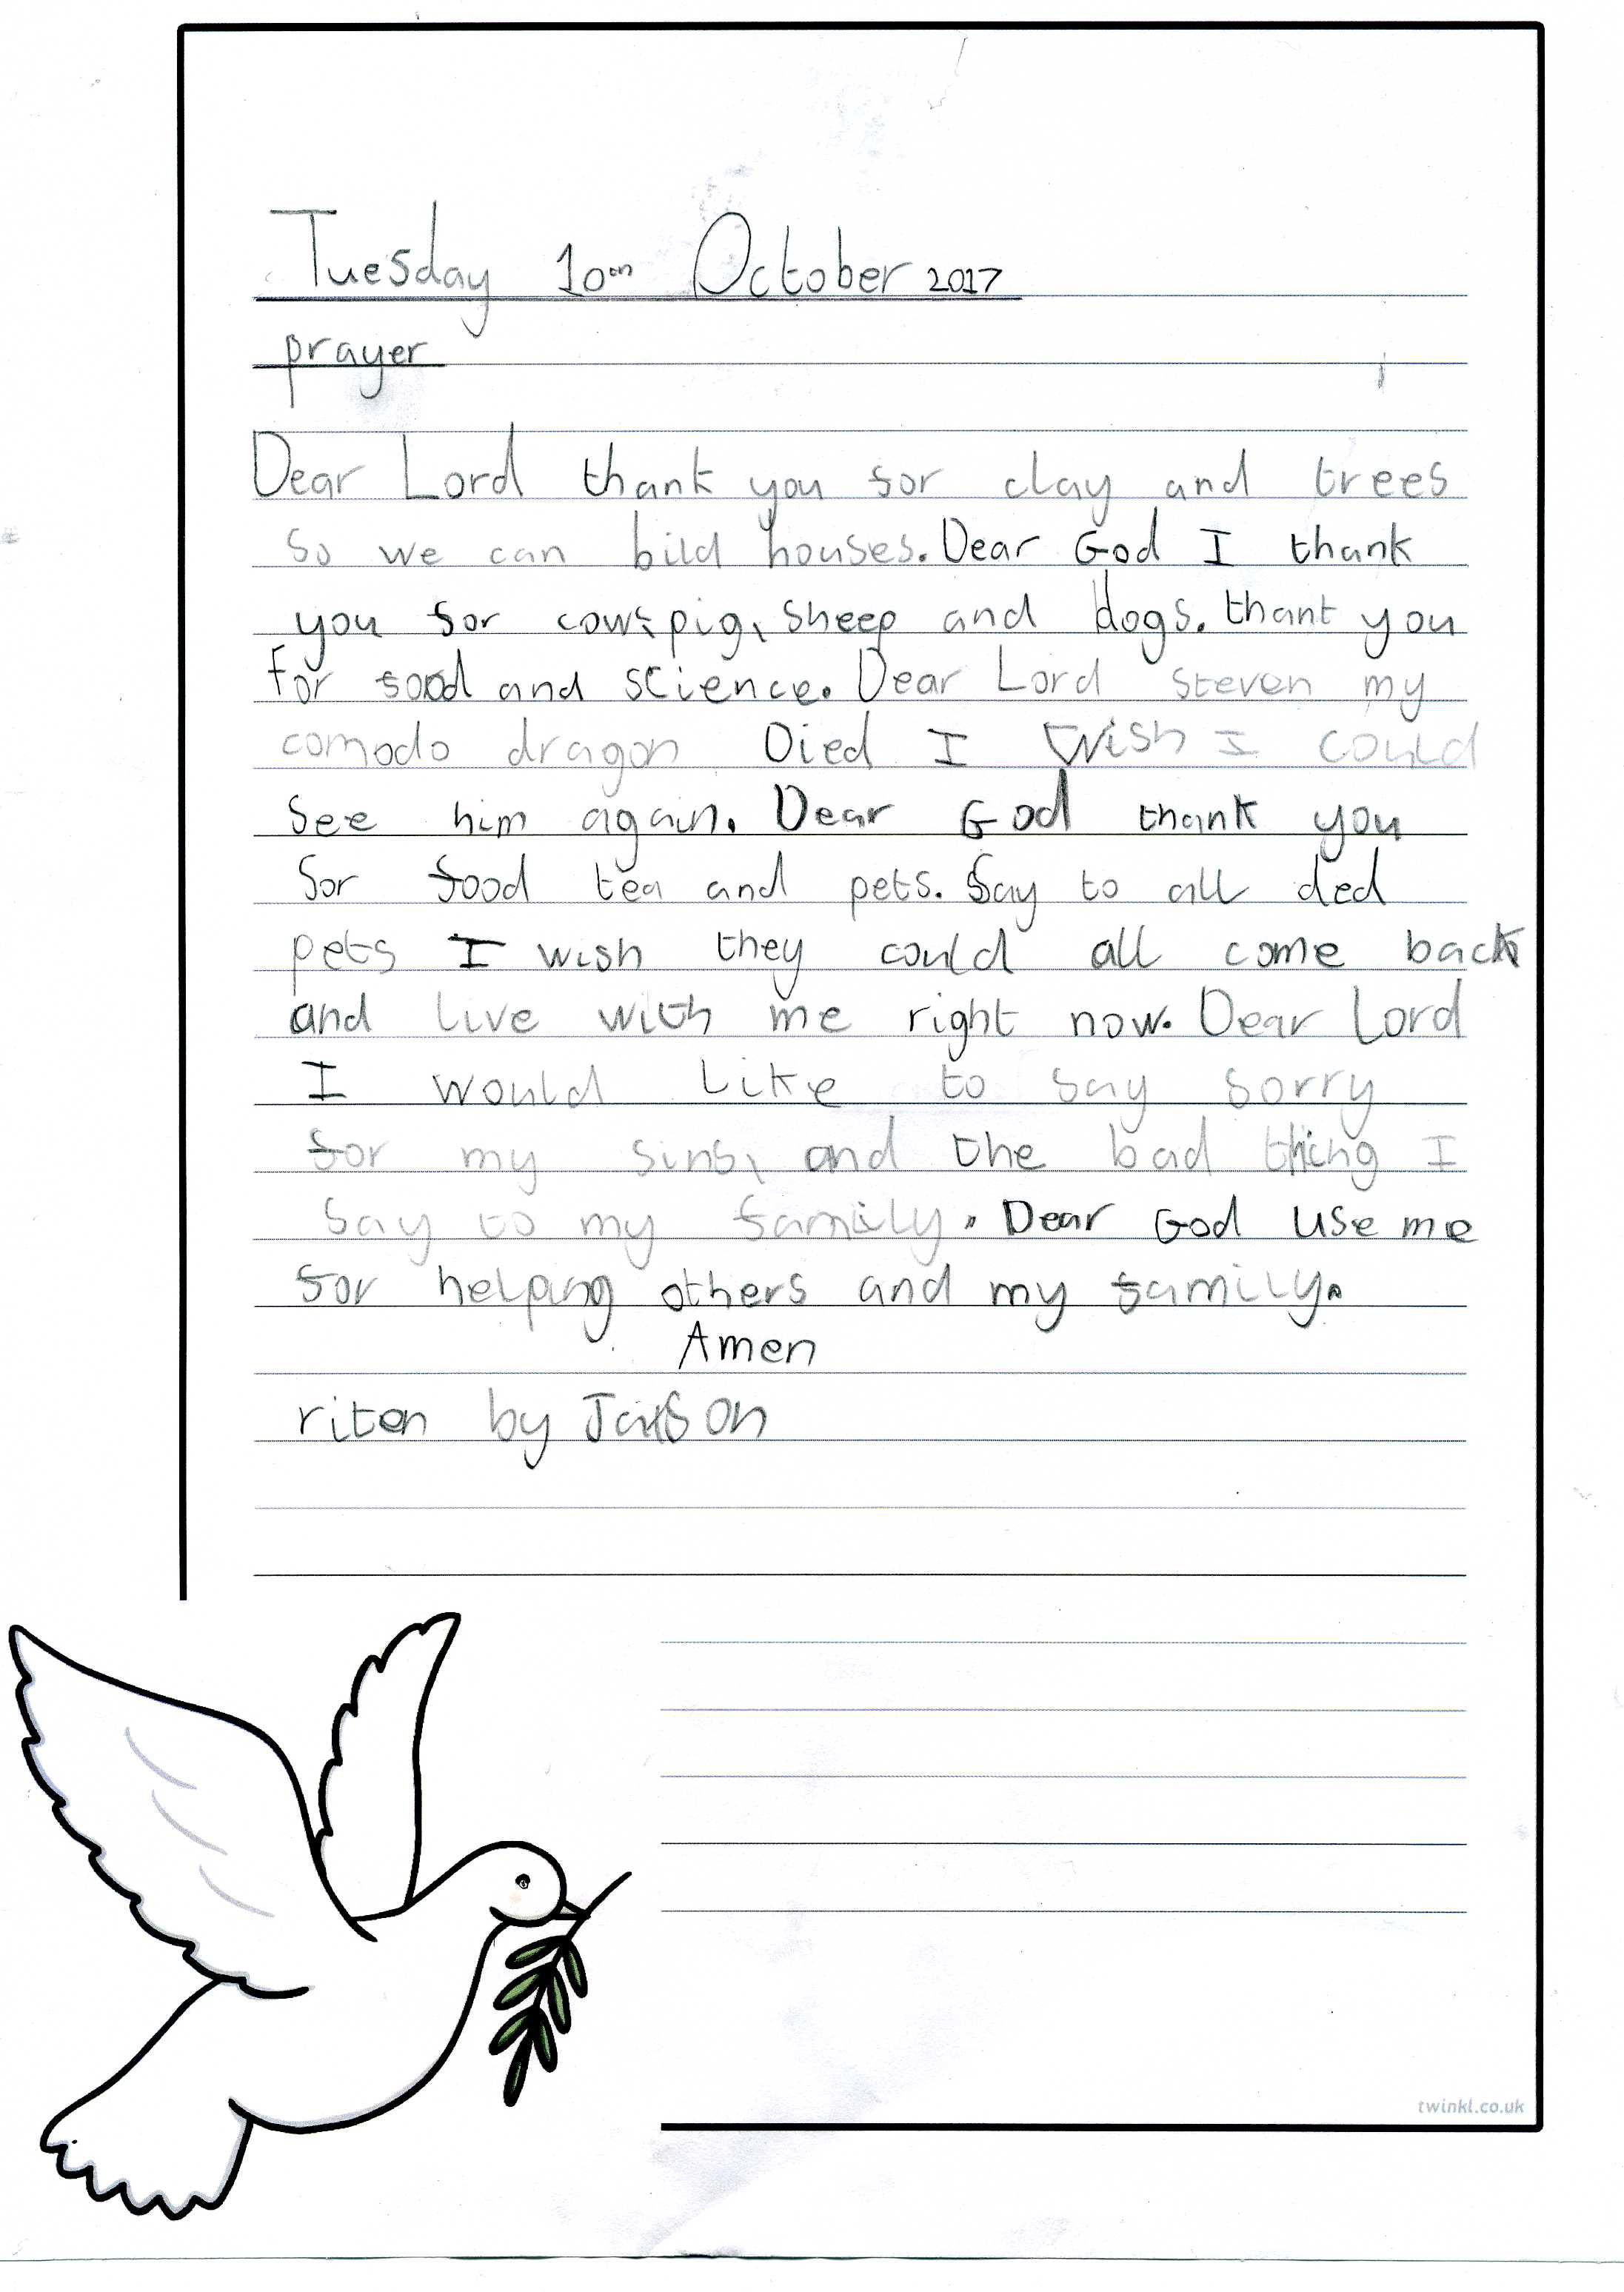 Tuesday 10th October 2017
prayer
Dear Lord thank you for clay and trees
so we can bild houses. Dear God I thank
you for cows, pig, sheep and dogs. thant you
for food and science. Dear Lord steven my
comodo dragon Died I wish I could
see him again. Dear God thank you
for food tea and pets. Say to all ded
pets I wish they could all come back
and live with me right now. Dear Lord
I would like to say sorry
for my sins, and the bad thing I
say to my family. Dear God use me
for helping others and my family.
Amen
riten by
twinkl.co.uk